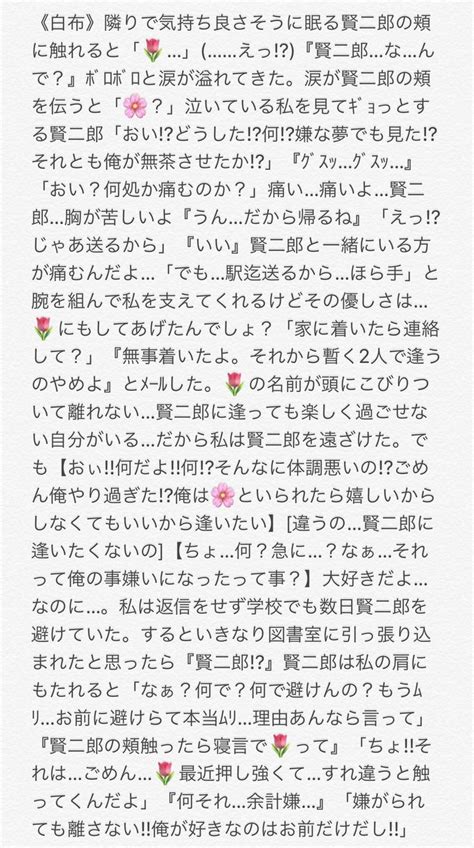 《白布》隣りで気持ち良さそうに眠る賢二郎の頬
に触れると「🌷…」(……えっ!?)『賢二郎…な…ん
で？』ﾎﾞﾛﾎﾞﾛと涙が溢れてきた。涙が賢二郎の頬
を伝うと「🌸？」泣いている私を見てｷﾞｮっとす
る賢二郎「おい!?どうした!?何!?嫌な夢でも見た!?
それとも俺が無茶させたか!?」『ｸﾞｽｯ…ｸﾞｽｯ…』
「おい？何処か痛むのか？」痛い…痛いよ…賢二
郎…胸が苦しいよ『うん…だから帰るね』「えっ!?
じゃあ送るから」『いい』賢二郎と一緒にいる方
が痛むんだよ…「でも…駅迄送るから…ほら手」と
腕を組んで私を支えてくれるけどその優しさは…
🌷にもしてあげたんでしょ？「家に着いたら連絡
して？」『無事着いたよ。それから暫く2人で逢う
のやめよ』とﾒｰﾙした。🌷の名前が頭にこびりつ
いて離れない…賢二郎に逢っても楽しく過ごせな
い自分がいる…だから私は賢二郎を遠ざけた。で
も【おぃ!!何だよ!!何!?そんなに体調悪いの!?ごめ
ん俺やり過ぎた!?俺は🌸といられたら嬉しいから
しなくてもいいから逢いたい】[違うの…賢二郎に
逢いたくないの]【ちょ…何？急に…？なぁ…それ
って俺の事嫌いになったって事？】大好きだよ…
なのに…。私は返信をせず学校でも数日賢二郎を
避けていた。するといきなり図書室に引っ張り込
まれたと思ったら『賢二郎!?』賢二郎は私の肩に
もたれると「なぁ？何で？何で避けんの？もうﾑ
ﾘ…お前に避けらて本当ﾑﾘ…理由あんなら言って」
『賢二郎の頬触ったら寝言で🌷って』「ちょ!!そ
れは…ごめん…🌷最近押し強くて…すれ違うと触
ってくんだよ」『何それ…余計嫌…』「嫌がられ
ても離さない!!俺が好きなのはお前だけだし!!」